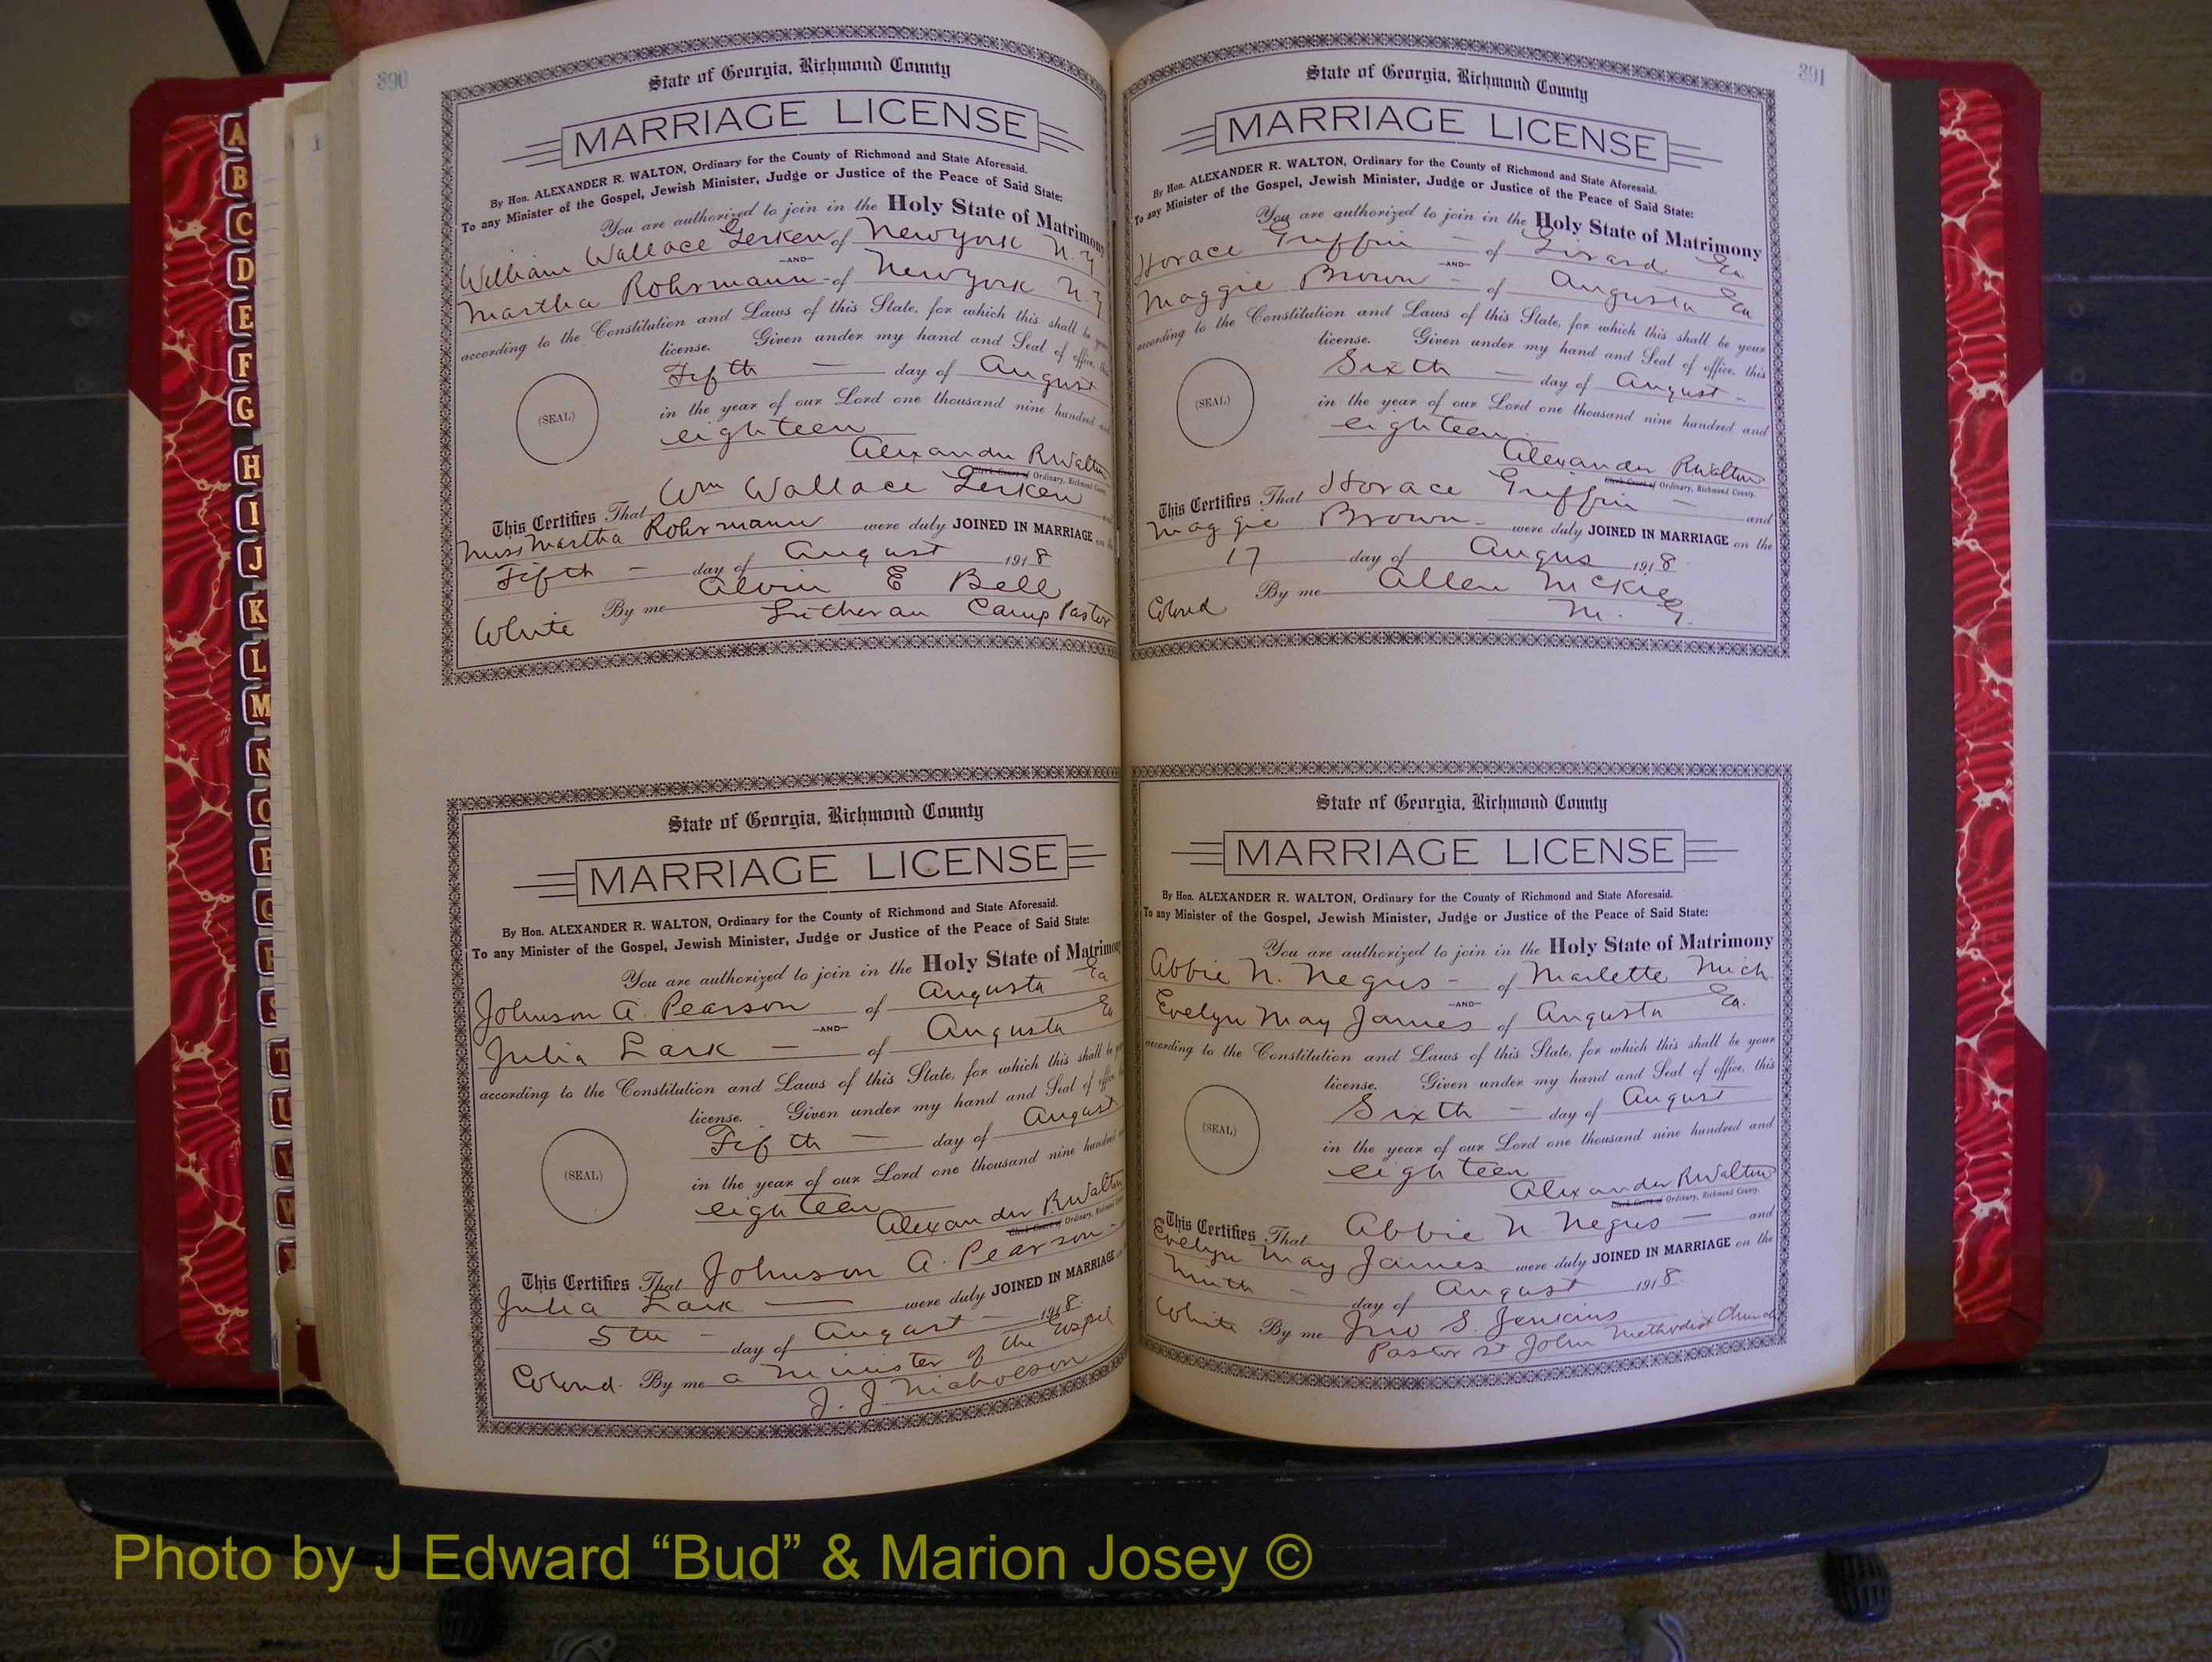 390
State of Georgia, Richmond County
MARRIAGE LICENSE
By Hon. ALEXANDER R. WALTON, Ordinary for the County of Richmond and State Aforesaid.
To any Minister of the Gospel, Jewish Minister, Judge or Justice of the Peace of Said State:
You are authorized to join in the Holy State of Matrimony
William Wallace Gerken of New York N.Y
—AND—
Martha Rohrmann of New York N.Y
according to the Constitution and Laws of this State, for which this shall be your
license. Given under my hand and Seal of office, this
Fifth — day of August
(SEAL)
in the year of our Lord one thousand nine hundred and
eighteen
Alexander R Walton
Clerk Court of Ordinary, Richmond County.
This Certifies That Wm Wallace Gerken
Miss Martha Rohrmann were duly JOINED IN MARRIAGE on the
Fifth — day of August 1918
By me Alvin E Bell
White Lutheran Camp Pastor
State of Georgia, Richmond County
MARRIAGE LICENSE
By Hon. ALEXANDER R. WALTON, Ordinary for the County of Richmond and State Aforesaid.
To any Minister of the Gospel, Jewish Minister, Judge or Justice of the Peace of Said State:
You are authorized to join in the Holy State of Matrimony
Johnson A. Pearson of Augusta Ga
—AND—
Julia Lark — of Augusta Ga
according to the Constitution and Laws of this State, for which this shall be your
license. Given under my hand and Seal of office
Fifth — day of August
(SEAL)
in the year of our Lord one thousand nine hundred
eighteen
Alexander R. Walton
Clerk Court of Ordinary, Richmond County
This Certifies That Johnson A. Pearson —
Julia Lark — were duly JOINED IN MARRIAGE
5th — day of August — 1918.
Colored. By me a minister of the Gospel
J. J Nicholson
391
State of Georgia, Richmond County
MARRIAGE LICENSE
By Hon. ALEXANDER R. WALTON, Ordinary for the County of Richmond and State Aforesaid.
To any Minister of the Gospel, Jewish Minister, Judge or Justice of the Peace of Said State:
You are authorized to join in the Holy State of Matrimony
Horace Griffin — of Girard Ga.
—AND—
Maggie Brown — of Augusta Ga
according to the Constitution and Laws of this State, for which this shall be your
license. Given under my hand and Seal of office, this
Sixth — day of August —
(SEAL)
in the year of our Lord one thousand nine hundred and
eighteen
Alexander R Walton
Clerk Court of Ordinary, Richmond County.
This Certifies That Horace Griffin — and
Maggie Brown — were duly JOINED IN MARRIAGE on the
17 day of Augus 1918
By me Allen McKie
Colored M. G.
State of Georgia, Richmond County
MARRIAGE LICENSE
By Hon. ALEXANDER R. WALTON, Ordinary for the County of Richmond and State Aforesaid.
To any Minister of the Gospel, Jewish Minister, Judge or Justice of the Peace of Said State:
You are authorized to join in the Holy State of Matrimony
Abbie N. Negus — of Marlette Mich
—AND—
Evelyn May James of Augusta Ga.
according to the Constitution and Laws of this State, for which this shall be your
license. Given under my hand and Seal of office, this
Sixth — day of August
(SEAL)
in the year of our Lord one thousand nine hundred and
eighteen
Alexander R Walton
Clerk Court of Ordinary, Richmond County.
This Certifies That Abbie N. Negus — and
Evelyn May James were duly JOINED IN MARRIAGE on the
Ninth — day of August 1918.
White By me Jno S. Jenkins
Pastor St John Methodist Church
A
B
C
D
E
F
G
H
I
J
K
L
M
N
O
P
Q
R
S
T
U
V
W
Photo by J Edward “Bud” & Marion Josey ©